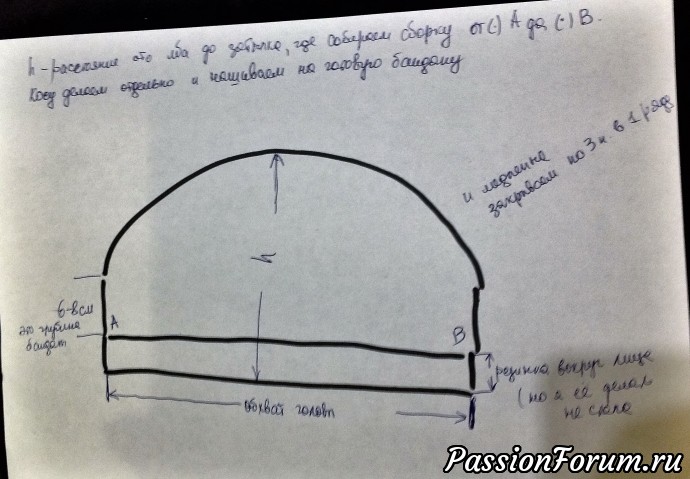 h - расстояние ото лба до затылка, где собираем сборку от (·) А до (·) В.
Косу делаем отдельно и нашиваем на готовую бандану
и медленно
закрываем по 3 п. в 1 ряде
h
6-8 см
это глубина
бандан
А
В
резинка вокруг лица
(но я её делать
не стала
обхват головы
PassionForum.ru